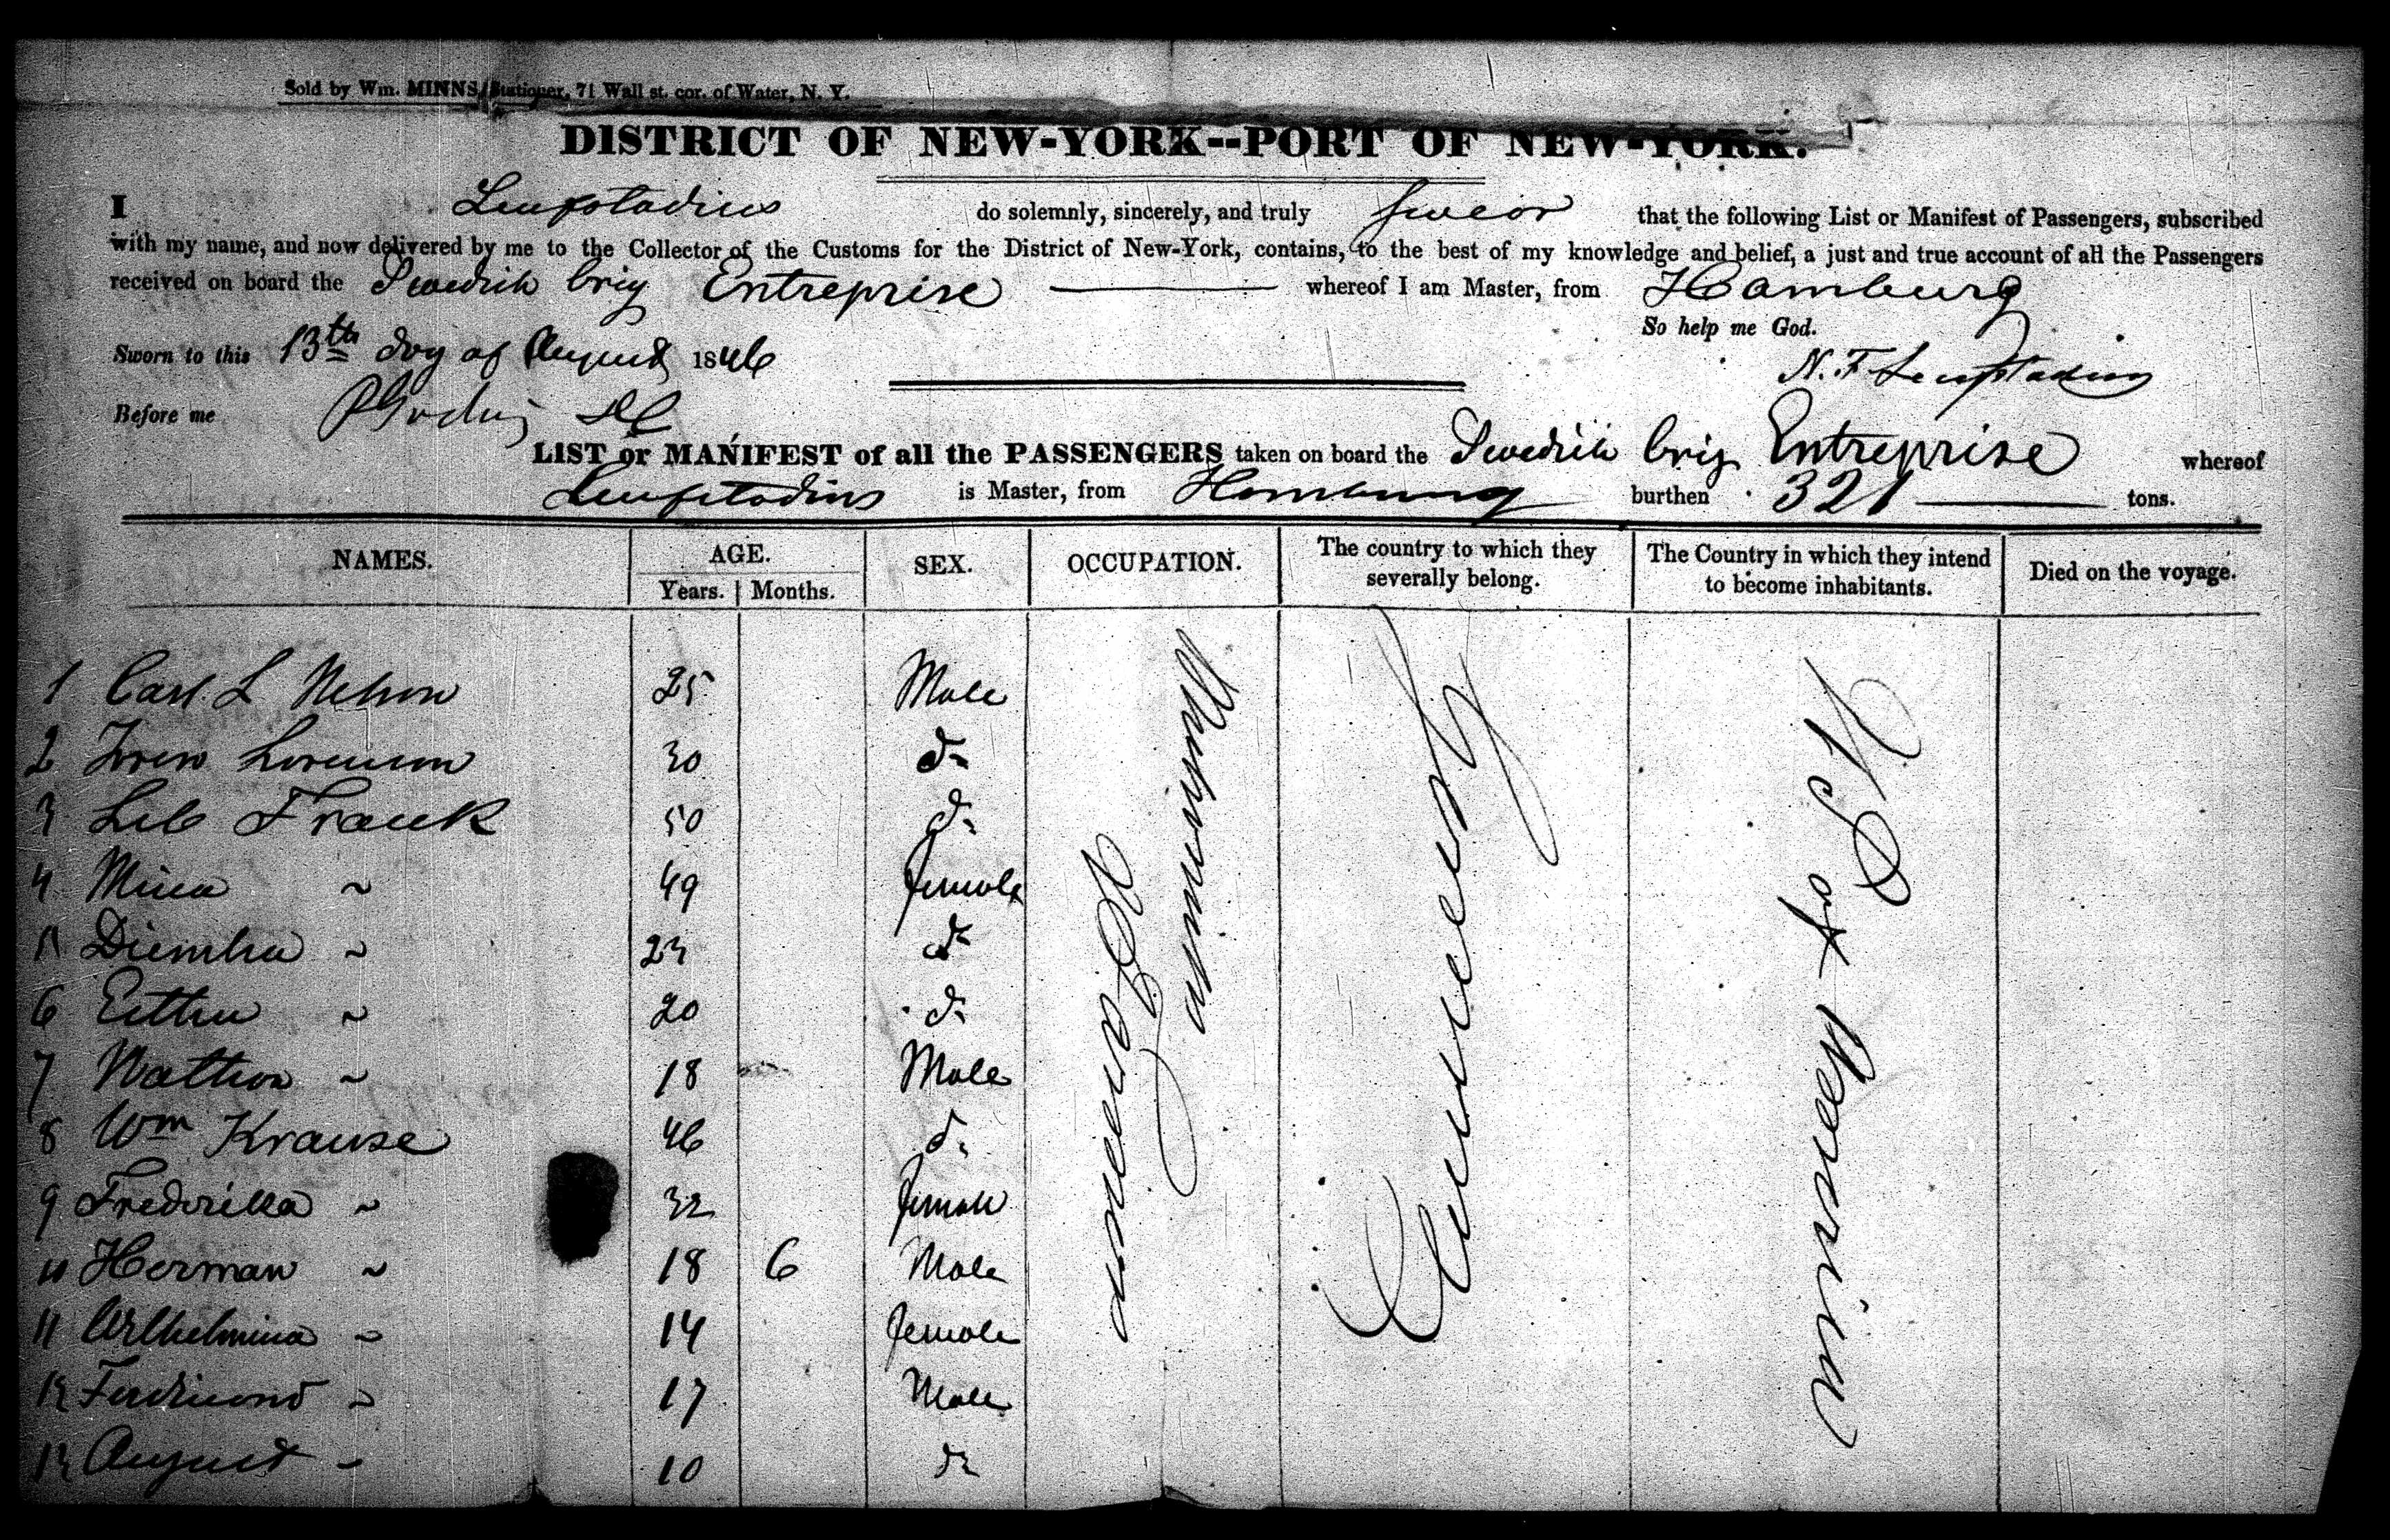 Sold by Wm. MINNS, Stationer, 71 Wall st. cor. of Water, N. Y.
DISTRICT OF NEW-YORK--PORT OF NEW-YORK.
I do solemnly, sincerely, and truly swear that the following List or Manifest of Passengers, subscribed
with my name, and now delivered by me to the Collector of the Customs for the District of New-York, contains, to the best of my knowledge and belief, a just and true account of all the Passengers
received on board the Swedish brig Entreprise whereof I am Master, from Hamburg
So help me God.
Sworn to this 13th day of August 1846
N. F.
Before me
LIST or MANIFEST of all the PASSENGERS taken on board the Swedish brig Entreprise whereof
is Master, from Hamburg burthen 321 tons.
NAMES. AGE. SEX. OCCUPATION. The country to which they severally belong. The Country in which they intend to become inhabitants. Died on the voyage.
Years. Months.
1 Carl L Nelson 25 Male
2 30 do
3 Frank 50 do
4 Mina ~ 49 female
5 ~ 23 do
6 ~ 20 do
7 ~ 18 Male
8 Wm Krause 46 do
9 Frederika ~ 32 female
10 Herman ~ 18 6 Male
11 Wilhelmina ~ 14 female
12 Ferdinand ~ 17 Male
13 August ~ 10 do
Germany
U S of America